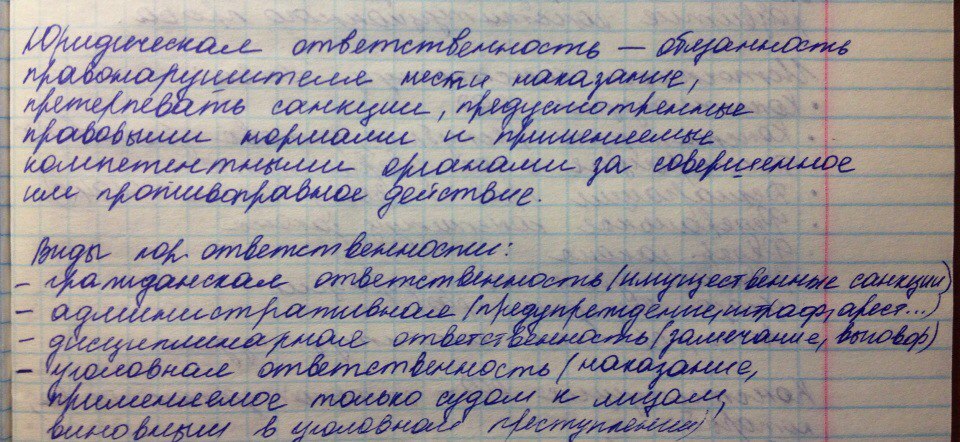 Юридическая ответственность – обязанность
правонарушителя нести наказание,
претерпевать санкции, предусмотренные
правовыми нормами и применяемые
компетентными органами за совершенное
им противоправное действие.
Виды юр. ответственности:
- гражданская ответственность (имущественные санкции)
- административная (предупреждение, штраф, арест...)
- дисциплинарная ответственность (замечание, выговор)
- уголовная ответственность (наказание,
применяемое только судом к лицам,
виновным в уголовном преступлении)